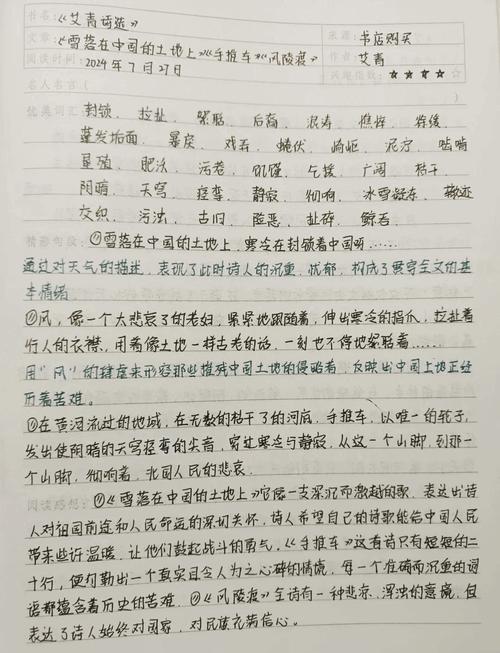 书名：《艾青诗选》
文章：《雪落在中国的土地上》《手推车》《风陵渡》 来源：书店购买
阅读时间：2024年7月27日 作者：艾青
推荐指数：★★★★
名人名言（ ）
优美词汇：封锁、拉扯、絮聒、后裔、浪涛、憔悴、
蓬发垢面、暴戾、戏弄、蜷伏、崎岖、泥泞、啮啃
垦殖、肥沃、污老、饥馑、乞援、广阔、枯干
阴暗、天穹、痉挛、静寂、彻响、冰雪凝冻、
交织、污浊、古旧、险恶、扯碎、鲸吞
精彩句段：①雪落在中国的土地上，寒冷在封锁着中国呀……
通过对天气的描述，表现了此时诗人的沉重、忧郁，构成了贯穿全文的基
本情绪
②风，像一个太悲哀了的老妇，紧紧地跟随着，伸出寒冷的指爪，拉扯着
行人的衣襟，用着像土地一样古老的话，一刻也不停地絮聒着……
用"风"的肆虐来形容那些摧残中国土地的侵略者，反映出中国土地正经
历着苦难。
③在黄河流过的地域，在无数的枯干了的河底，手推车，以唯一的轮子，
发出使阴暗的天穹痉挛的尖音，穿过寒冷与静寂，从这一个山脚，到那一
个山脚，彻响着，北国人民的悲哀
阅读感想：①《雪落在中国的土地上》它像一支深沉而激越的歌，表达出诗
人对祖国前途和人民命运的深切关怀，诗人希望自己的诗歌能给中国人民
带来些许温暖，让他们鼓起战斗的勇气，《手推车》这首诗只有短短的二
十行，便勾勒出一个真实且令人为之心碎的情境，每一个准确而沉重的词
语都蕴含着历史的苦难。②《风陵渡》全诗有一种悲凉、浑浊的意境，但
表达了诗人始终对国家，对民族充满信心。